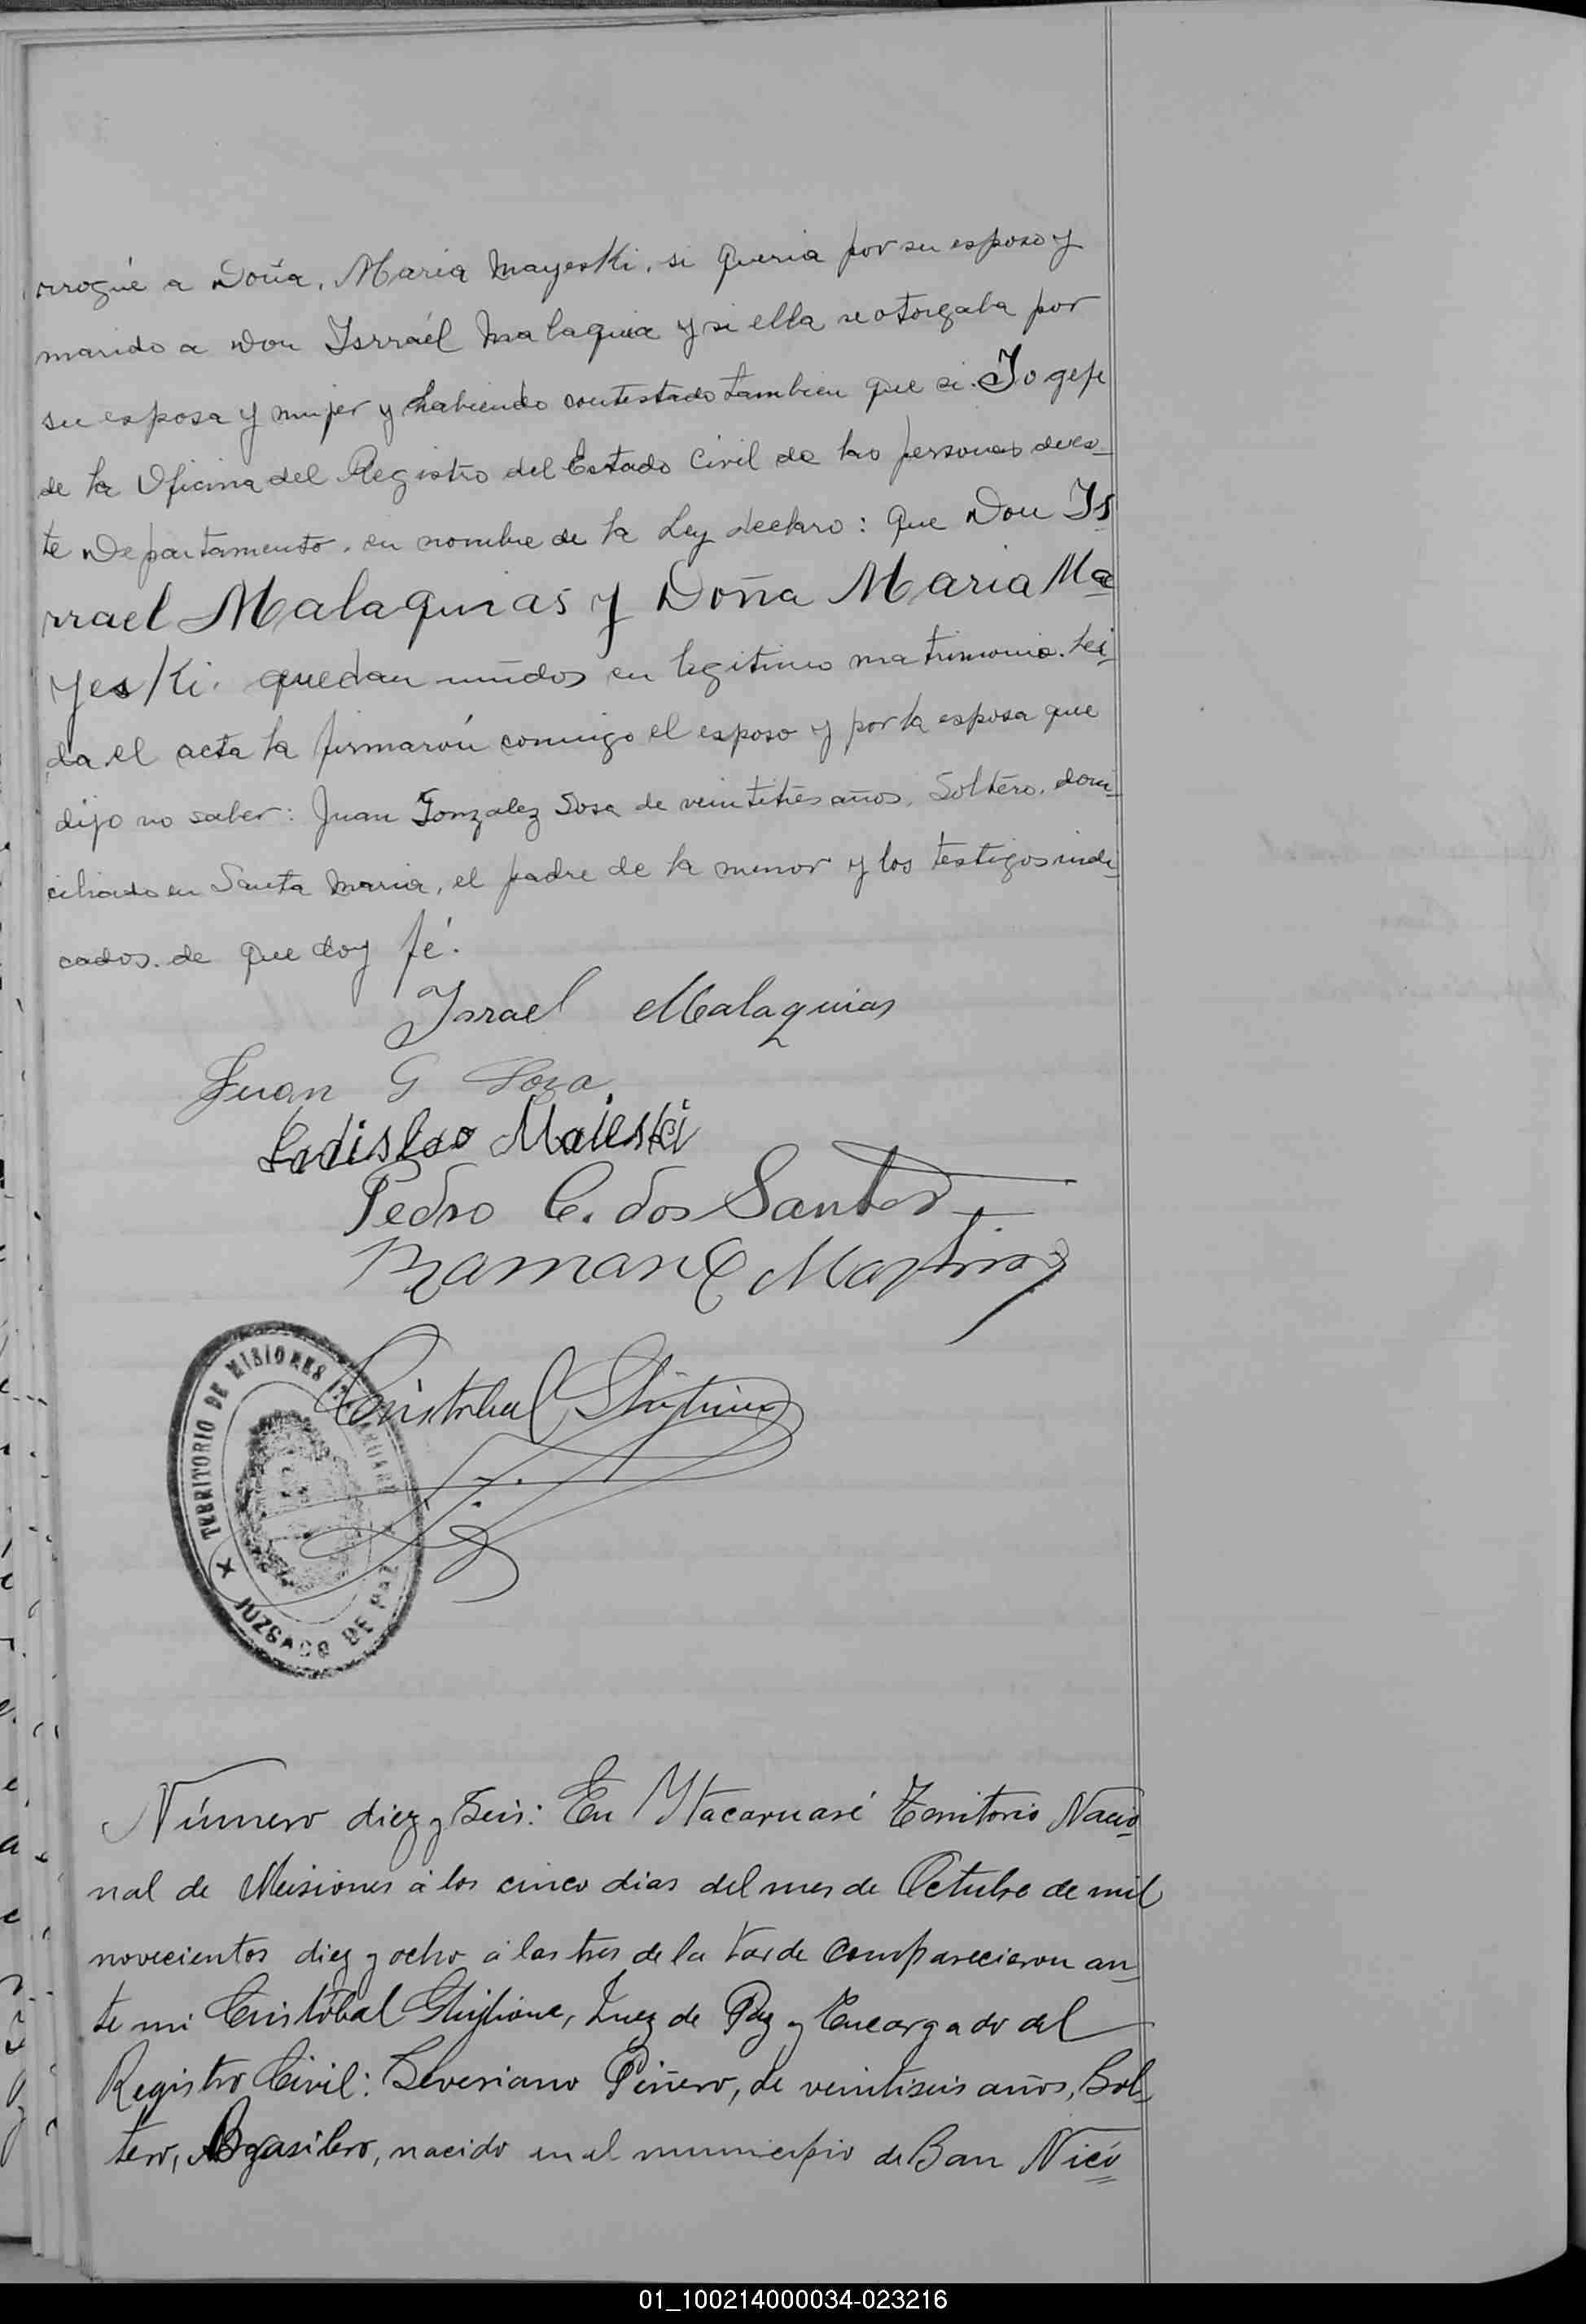 rrogué a Doña, Maria Mayeski, si queria por su esposo y
marido a Don Isrráel Malaquia y si ella se otorgaba por
su esposa y mujer y habiendo contestado tambien que si. Yo gefe
de la Oficina del Registro del Estado Civil de las personas de es-
te Departamento. en nombre de la Ley declaro: que Don Is
rrael Malaquias y Doña Maria Ma
yeski. quedan unidos en legitimo matrimonio. Lei
da el acta la firmarón conmigo el esposo y por la esposa que
dijo no saber: Juan Gonzalez Sosa de veintitrés años, Soltéro, domi-
ciliado en Santa Maria, el padre de la menor y los testigos indi-
cados. de que doy fé.
Israel Malaquias
Juan G Soza
Ladislao Maieski
Pedro C. dos Santos
Martinez
Cristobal
TERRITORIO DE MISIONES
JUZGADO DE PAZ
Número diez y seis: En Ytacaruaré Territorio Nacio
nal de Misiones á los cinco dias del mes de Octubre de mil
novecientos diez y ocho á las tres de la tarde comparecieron an
te mi Cristóbal Ghiglione, Juez de Paz y Encargado del
Registro Civil: Severiano Piñero, de veintiseis años, Sol-
tero, Brasilero, nacido en el municipio de San Nico
01_100214000034-023216